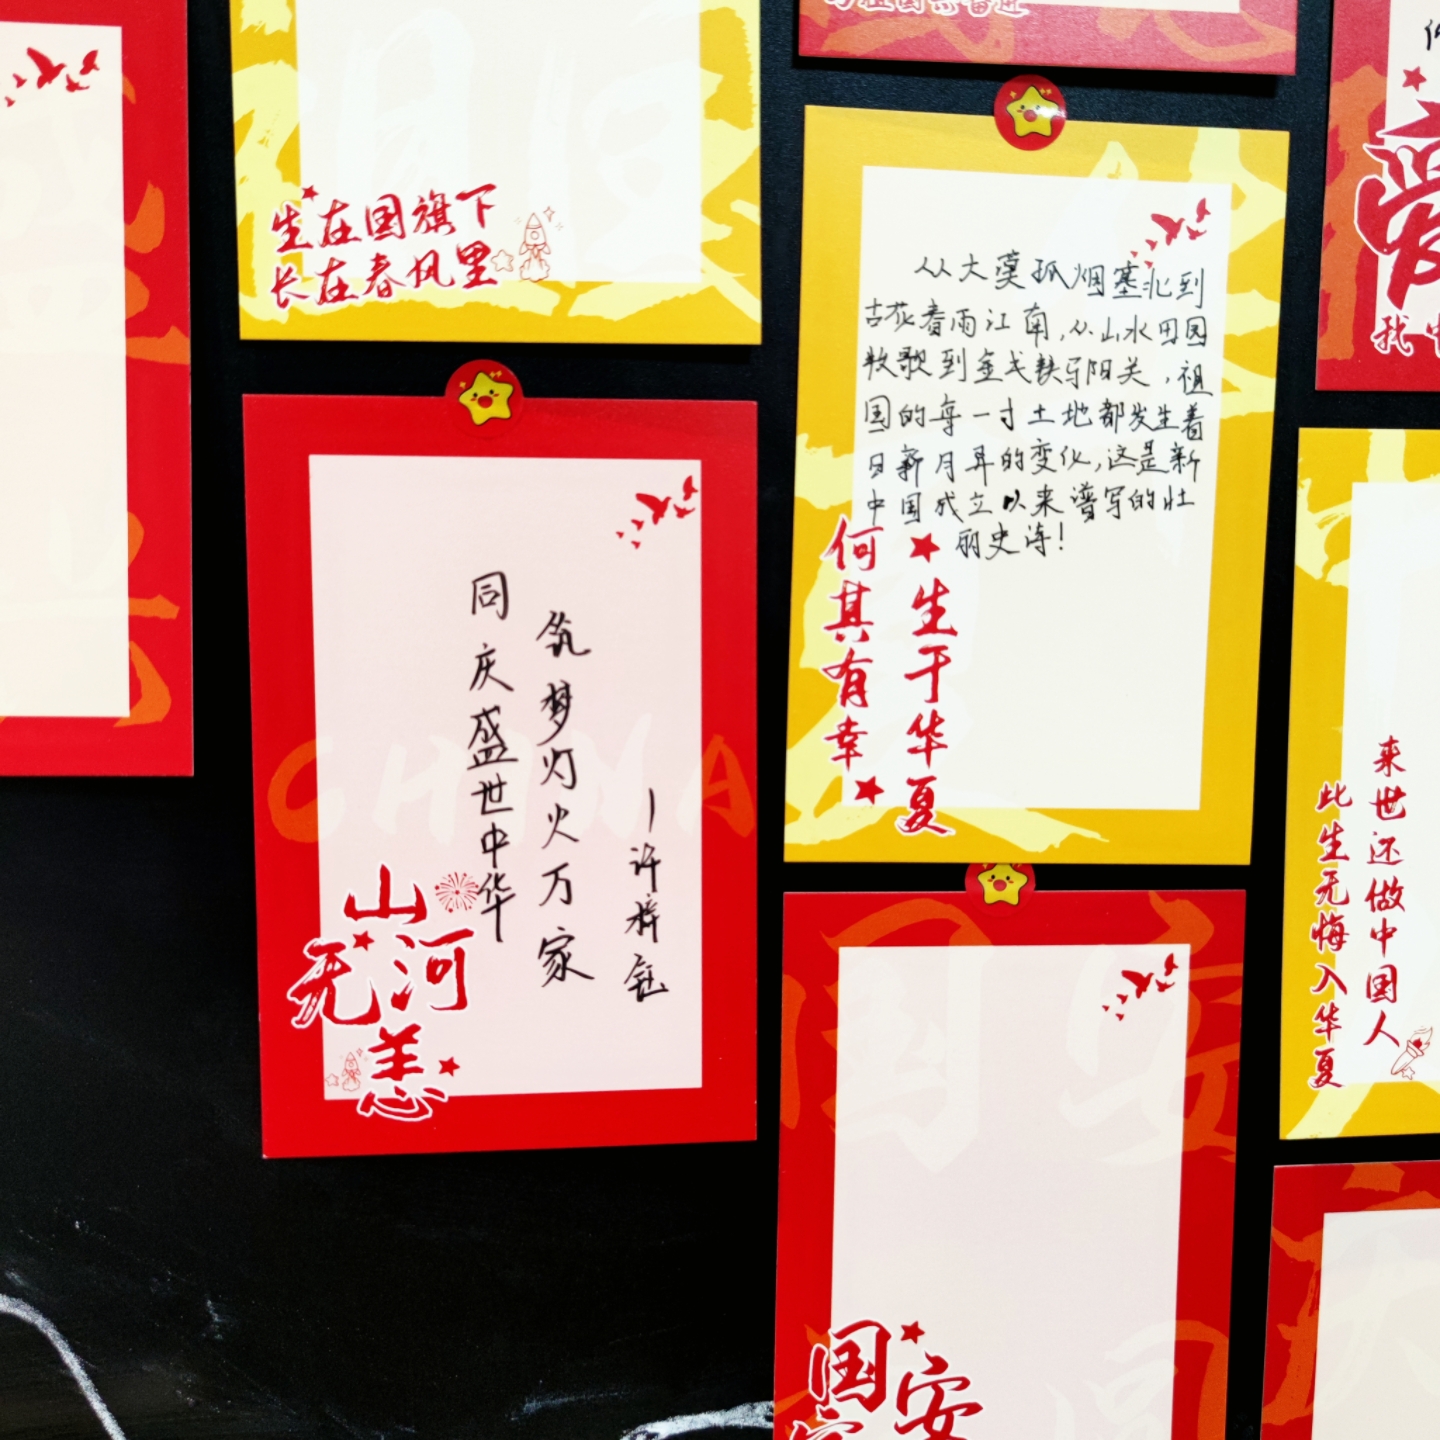 与祖国共奋进
生在国旗下
长在春风里
从大漠孤烟塞北到
古花春雨江南,从山水田园
牧歌到金戈铁马阳关,祖
国的每一寸土地都发生着
日新月异的变化,这是新
中国成立以来谱写的壮
丽史诗!
生于华夏
何其有幸
同庆盛世中华
筑梦灯火万家
CHINA
山河
无恙
来世还做中国人
此生无悔入华夏
国安
爱
我中